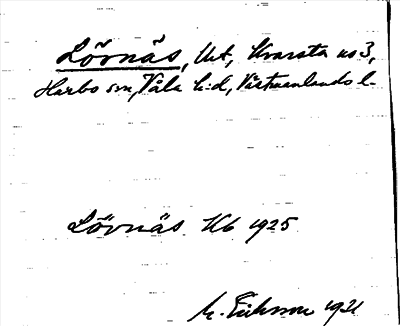 Lövnäs, Ut, Kvarsta no 3,
Harbo sn, Våla h:d, Västmanlands l.
Lövnäs Kb 1925
M. Eriksson 1931